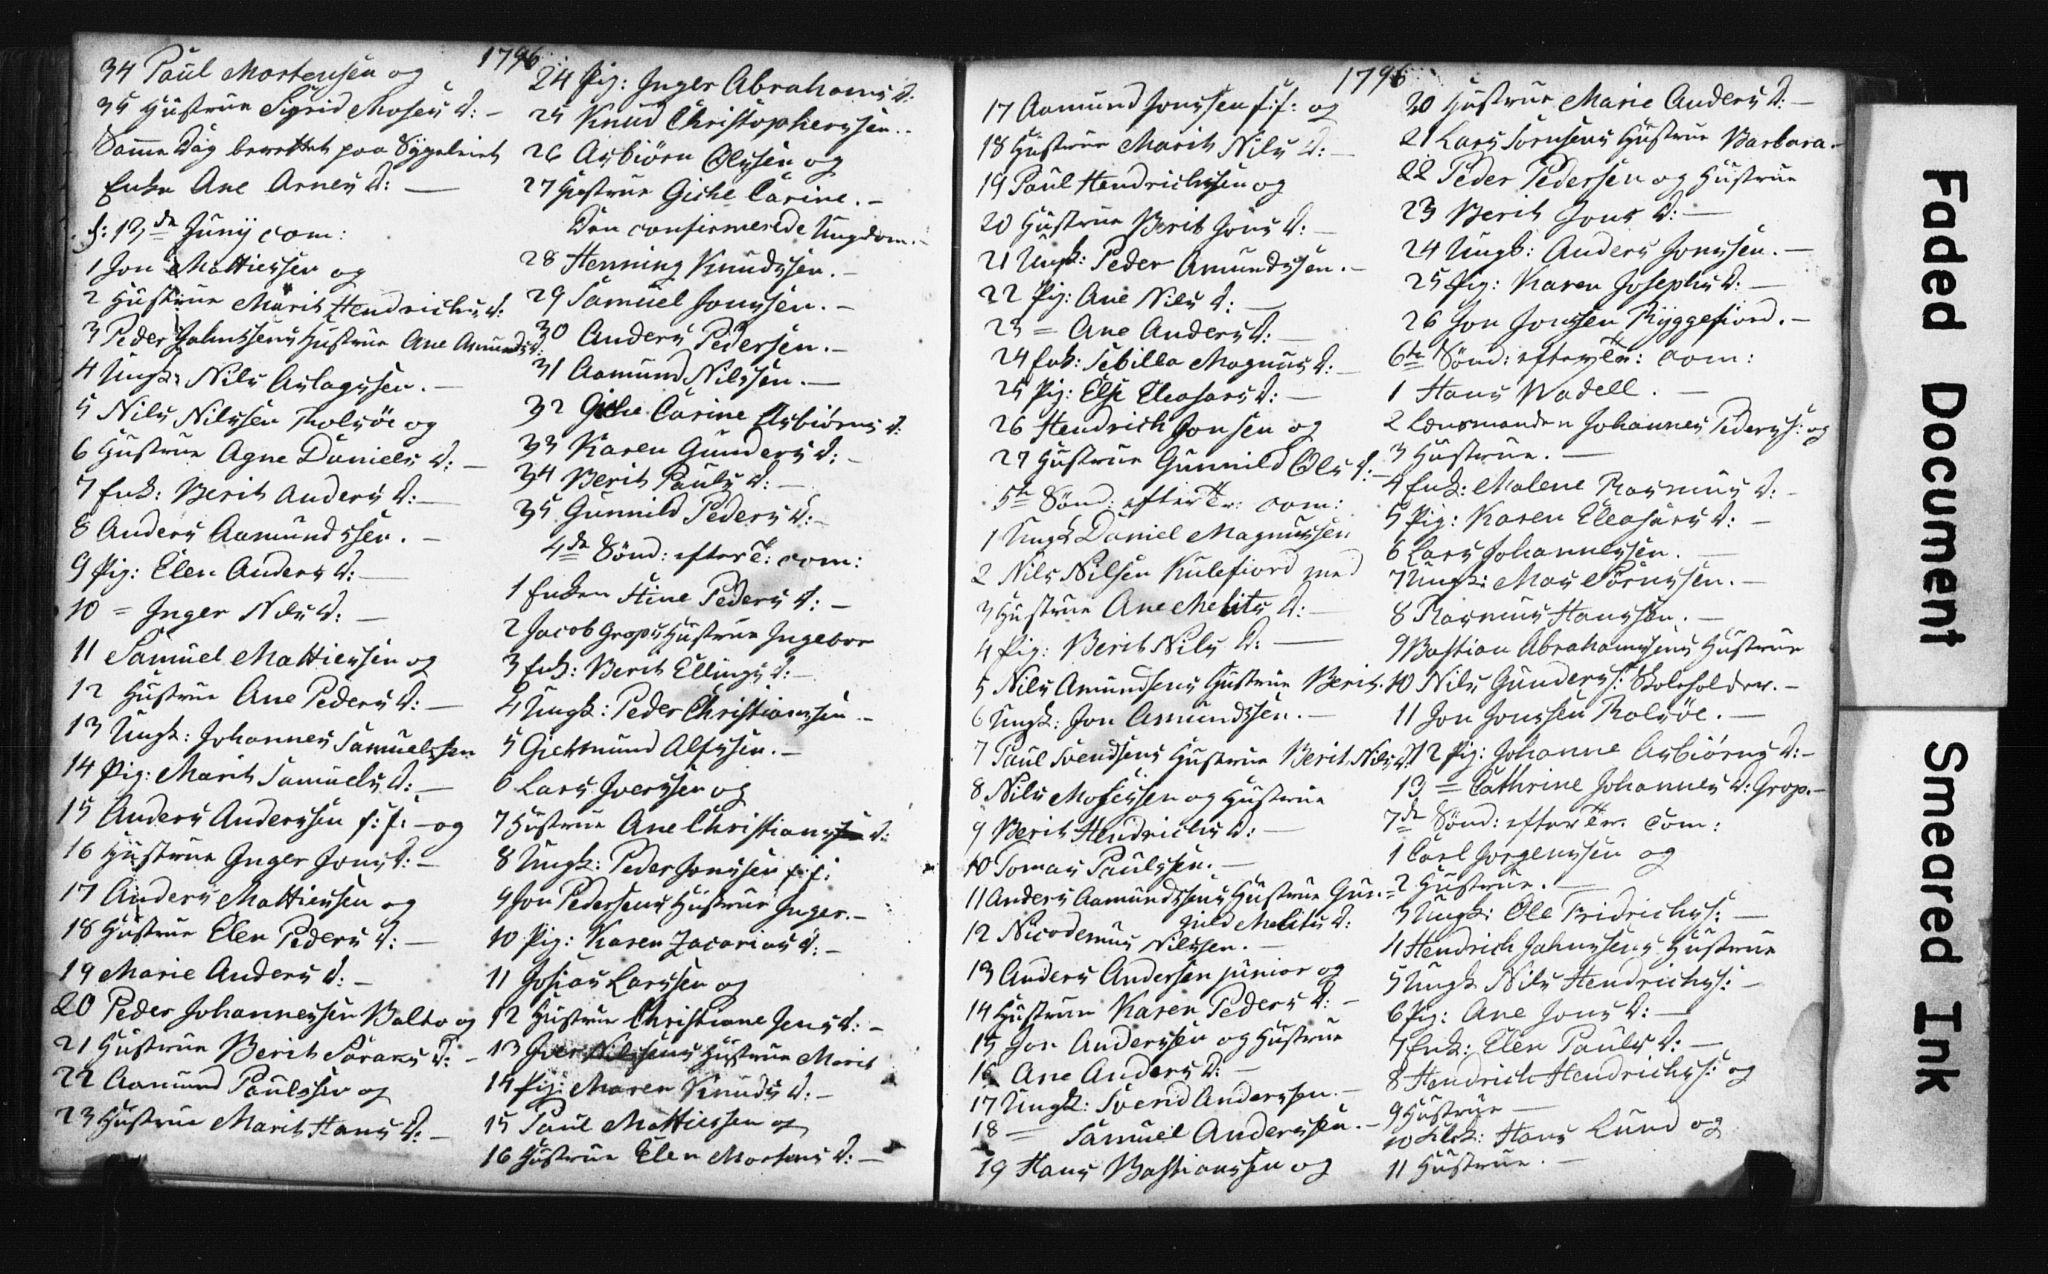 1796
34 Paul Mortensen og
35 Hustrue Sigrid Moses D: -
Samme Dag berettet paa Sygeleiet
Enke Ane Arnes D: -
d: 12de Junij com:
1 Jon Mathiessen og
2 Hustrue Marit Hendrichs d:
3 Peder Hustrue Ane Amunds d:
4 Ungk: Nils Aslagssen. -
5 Nils Nilssen Rolsöe og
6 Hustrue Agne Daniels D: -
7 Enk: Berit Anders D: -
8 Anders Aamundssen. -
9 Pig: Elen Anders D: -
10 = Inger Nils D: -
11 Samuel Mathiessen og
12 Hustrue Ane Peders D: -
13 Ungk: Johannes Samuelssen
14 Pig: Marit Samuels D: -
15 Anders Anderssen f: f: - og
16 Hustrue Inger Jons D: -
17 Anders Mathiessen og
18 Hustrue Elen Peders D: -
19 Marie Anders D: -
20 Peder Johannessen Balto og
21 Hustrue Berit D: -
22 Aamund Paulssen og
23 Hustrue Marit Hans D: -
24 Pig: Inger Abrahams D:
25 Knud Christopherssen. -
26 Asbiörn Olssen og
27 Hustrue Gitke Carine. -
Den confirmerede Ungdom. -
28 Henning Knudssen. -
29 Samuel Jonssen. -
30 Anders Pedersen. -
31 Aamund Nilssen. -
32 Carine Asbiörns D:
33 Karen Gunders D: -
34 Berit Pauls D: -
35 Gunnild Peders D: -
4de Sönd: efter T: com:
1 Enken Stine Peders D: -
2 Jacob Grops Hustrue Ingebor
3 Enk: Berit Ellings D: -
4 Ungk: Peder Christianssen -
5 Alfssen. -
6 Lars Iverssen og
7 Hustrue Ane Christians D:
8 Ungk: Peder Jonssen f: f:
9 Jon Pedersens Hustrue Inger. -
10 Pig: Karen Zacarias D: -
11 Josias Larssen og
12 Hustrue Christiane Jens D: -
13 Iver Nilssens Hustrue Marit
14 Pig: Maren Knuds D: -
15 Paul Mathiessen og
16 Hustrue Elen Mortens D: -
1796
17 Aamund Jonssen f: f: og
18 Hustrue Marit Nils D: -
19 Paul Hendrichssen og
20 Hustrue Berit Jons D: -
21 Ungk: Peder Amundssen. -
22 Pig: Ane Nils D: -
23 = Ane Anders D: -
24 Enk: Sebilla Magnus D: -
25 Pig: Else Eleasars D: -
26 Hendrich Jonsen og
27 Hustrue Gunnild Ols D: -
5te Sönd: efter Tr: com:
1 Ungk Daniel Magnussen
2 Nils Nilsen Kulefiord med
3 Hustrue Ane Melits D: -
4 Pig: Berit Nils D: -
5 Nils Amundsens Hustrue Berit. -
6 Ungk: Jon Amundssen. -
7 Paul Svendsens Hustrue Berit Nils D:
8 Nils Mosessen og Hustrue
9 Berit Hendrichs D: -
10 Tomas Paulssen. -
11 Anders Aamundssens Hustrue Gun=
nild Melits D:
12 Nicodemus Nilssen. -
13 Anders Andersen junior og
14 Hustrue Karen Peders D: -
15 Jon Anderssen og Hustrue
16 Ane Anders D: -
17 Ungk: Sverid Anderssen. -
18 = Samuel Anderssen. -
19 Hans Bastianssen og
20 Hustrue Marie Anders D: -
21 Lars Hustrue Barbara. -
22 Peder Pedersen og Hustrue
23 Berit Jons D: -
24 Ungk: Anders Jonssen. -
25 Pig: Karen Josephs D: -
26 Jon Jonssen Ryggefiord. -
6te Sönd: efter Tr: com:
1 Hans Wadell. -
2 Lensmanden Johannes Peders: og
3 Hustrue. -
4 Enk: Malene Rasmus D: -
5 Pig: Karen Eleasars D: -
6 Lars Johannessen. -
7 Ungk: Mas -
8 Rasmus Hanssen. -
9 Bastian Abrahamssens Hustrue
10 Nils Gunders: Skoleholder. -
11 Jon Jonssen Rolsöe. -
12 Pig: Johanne Asbiörns D: -
13 = Cathrine Johannes D: Grop. -
7de Sönd: efter Tr. Com:
1 Carl Jorgenssen og
2 Hustrue. -
3 Ungk: Ole Fridrichs: -
4 Hendrich Hustrue
5 Ungk Nils Hendrichs: -
6 Pig: Ane Jons D: -
7 Enk: Elen Pauls D: -
8 Hendrich Hendrichs: og
9 Hustrue -
10 Hans Lund og
11 Hustrue. -
Faded Document
Smeared Ink